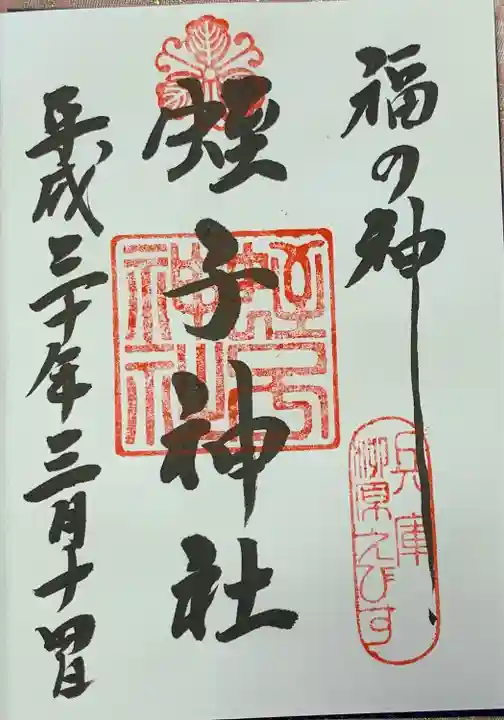 福の神
兵庫
柳原えびす
蛭子神社
蛭子神社
平成三十年三月十四日